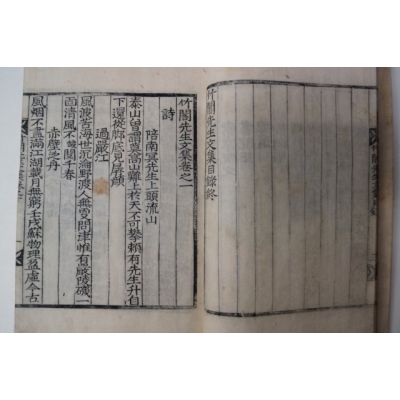 竹閣先生文集目錄終
竹閣先生文集卷之一
詩
陪南冥先生上頭流山
泰山曾謂嵩高難上於天不可攀賴有先生升自
下還從脚底見孱顔
過嚴江
風波苦海世沉淪野渡人無更問津惟有嚴陵磯一
面清風不閱千春
赤壁之舟
風烟不盡滿江湖載月無窮壬戌蘇物理盈虛今古